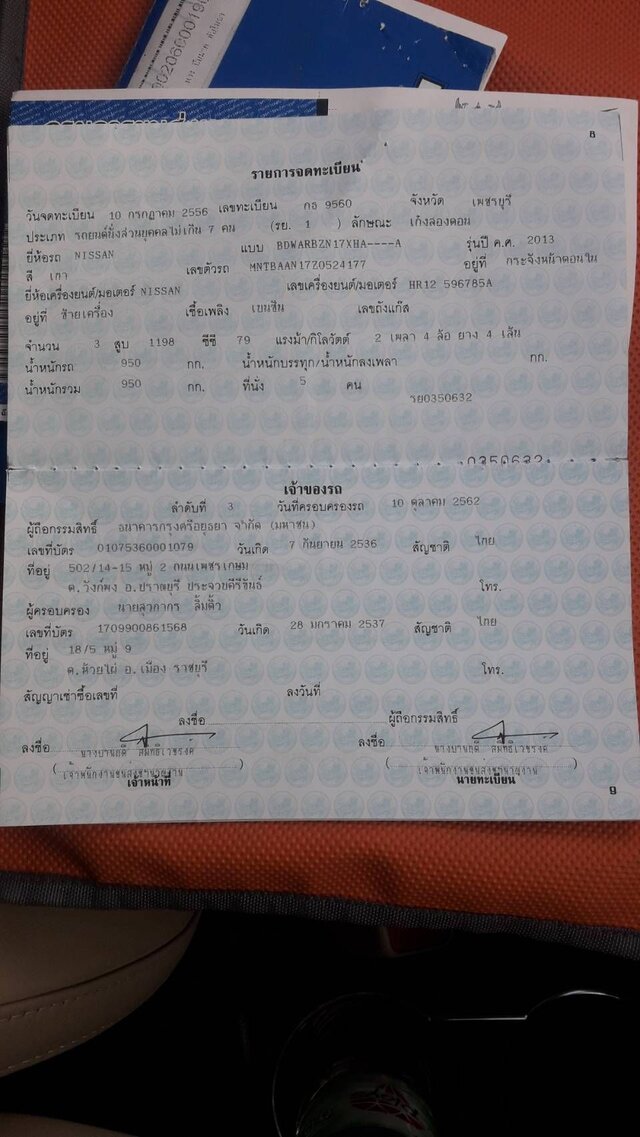 8
รายการจดทะเบียน
วันจดทะเบียน 10 กรกฎาคม 2556 เลขทะเบียน กธ 9560 จังหวัด เพชรบุรี
ประเภท รถยนต์นั่งส่วนบุคคลไม่เกิน 7 คน (รย. 1 ) ลักษณะ เก๋งสองตอน
ยี่ห้อรถ NISSAN แบบ BDWARBZN17XHA----A รุ่นปี ค.ศ. 2013
สี เทา เลขตัวรถ MNTBAAN17Z0524177 อยู่ที่ กระจังหน้าตอนใน
ยี่ห้อเครื่องยนต์/มอเตอร์ NISSAN เลขเครื่องยนต์/มอเตอร์ HR12 596785A
อยู่ที่ ซ้ายเครื่อง เชื้อเพลิง เบนซิน เลขถังแก๊ส
จำนวน 3 สูบ 1198 ซีซี 79 แรงม้า/กิโลวัตต์ 2 เพลา 4 ล้อ ยาง 4 เส้น
น้ำหนักรถ 950 กก. น้ำหนักบรรทุก/น้ำหนักลงเพลา กก.
น้ำหนักรวม 950 กก. ที่นั่ง 5 คน
รย0350632
0350632
เจ้าของรถ
ลำดับที่ 3 วันที่ครอบครองรถ 10 ตุลาคม 2562
ผู้ถือกรรมสิทธิ์ ธนาคารกรุงศรีอยุธยา จำกัด (มหาชน)
เลขที่บัตร 01075360001079 วันเกิด 7 กันยายน 2536 สัญชาติ ไทย
ที่อยู่ 502/14-15 หมู่ 2 ถนนเพชรเกษม
ต.วังก์พง อ.ปราณบุรี ประจวบคีรีขันธ์ โทร.
ผู้ครอบครอง นายสุวภากร ลิ้มติ้ว
เลขที่บัตร 1709900861568 วันเกิด 28 มกราคม 2537 สัญชาติ ไทย
ที่อยู่ 18/5 หมู่ 9
ต.ห้วยไผ่ อ.เมือง ราชบุรี โทร.
สัญญาเช่าซื้อเลขที่ ลงวันที่
ลงชื่อ ผู้ถือกรรมสิทธิ์
ลงชื่อ ลงชื่อ
เจ้าหน้าที่ นายทะเบียน
9